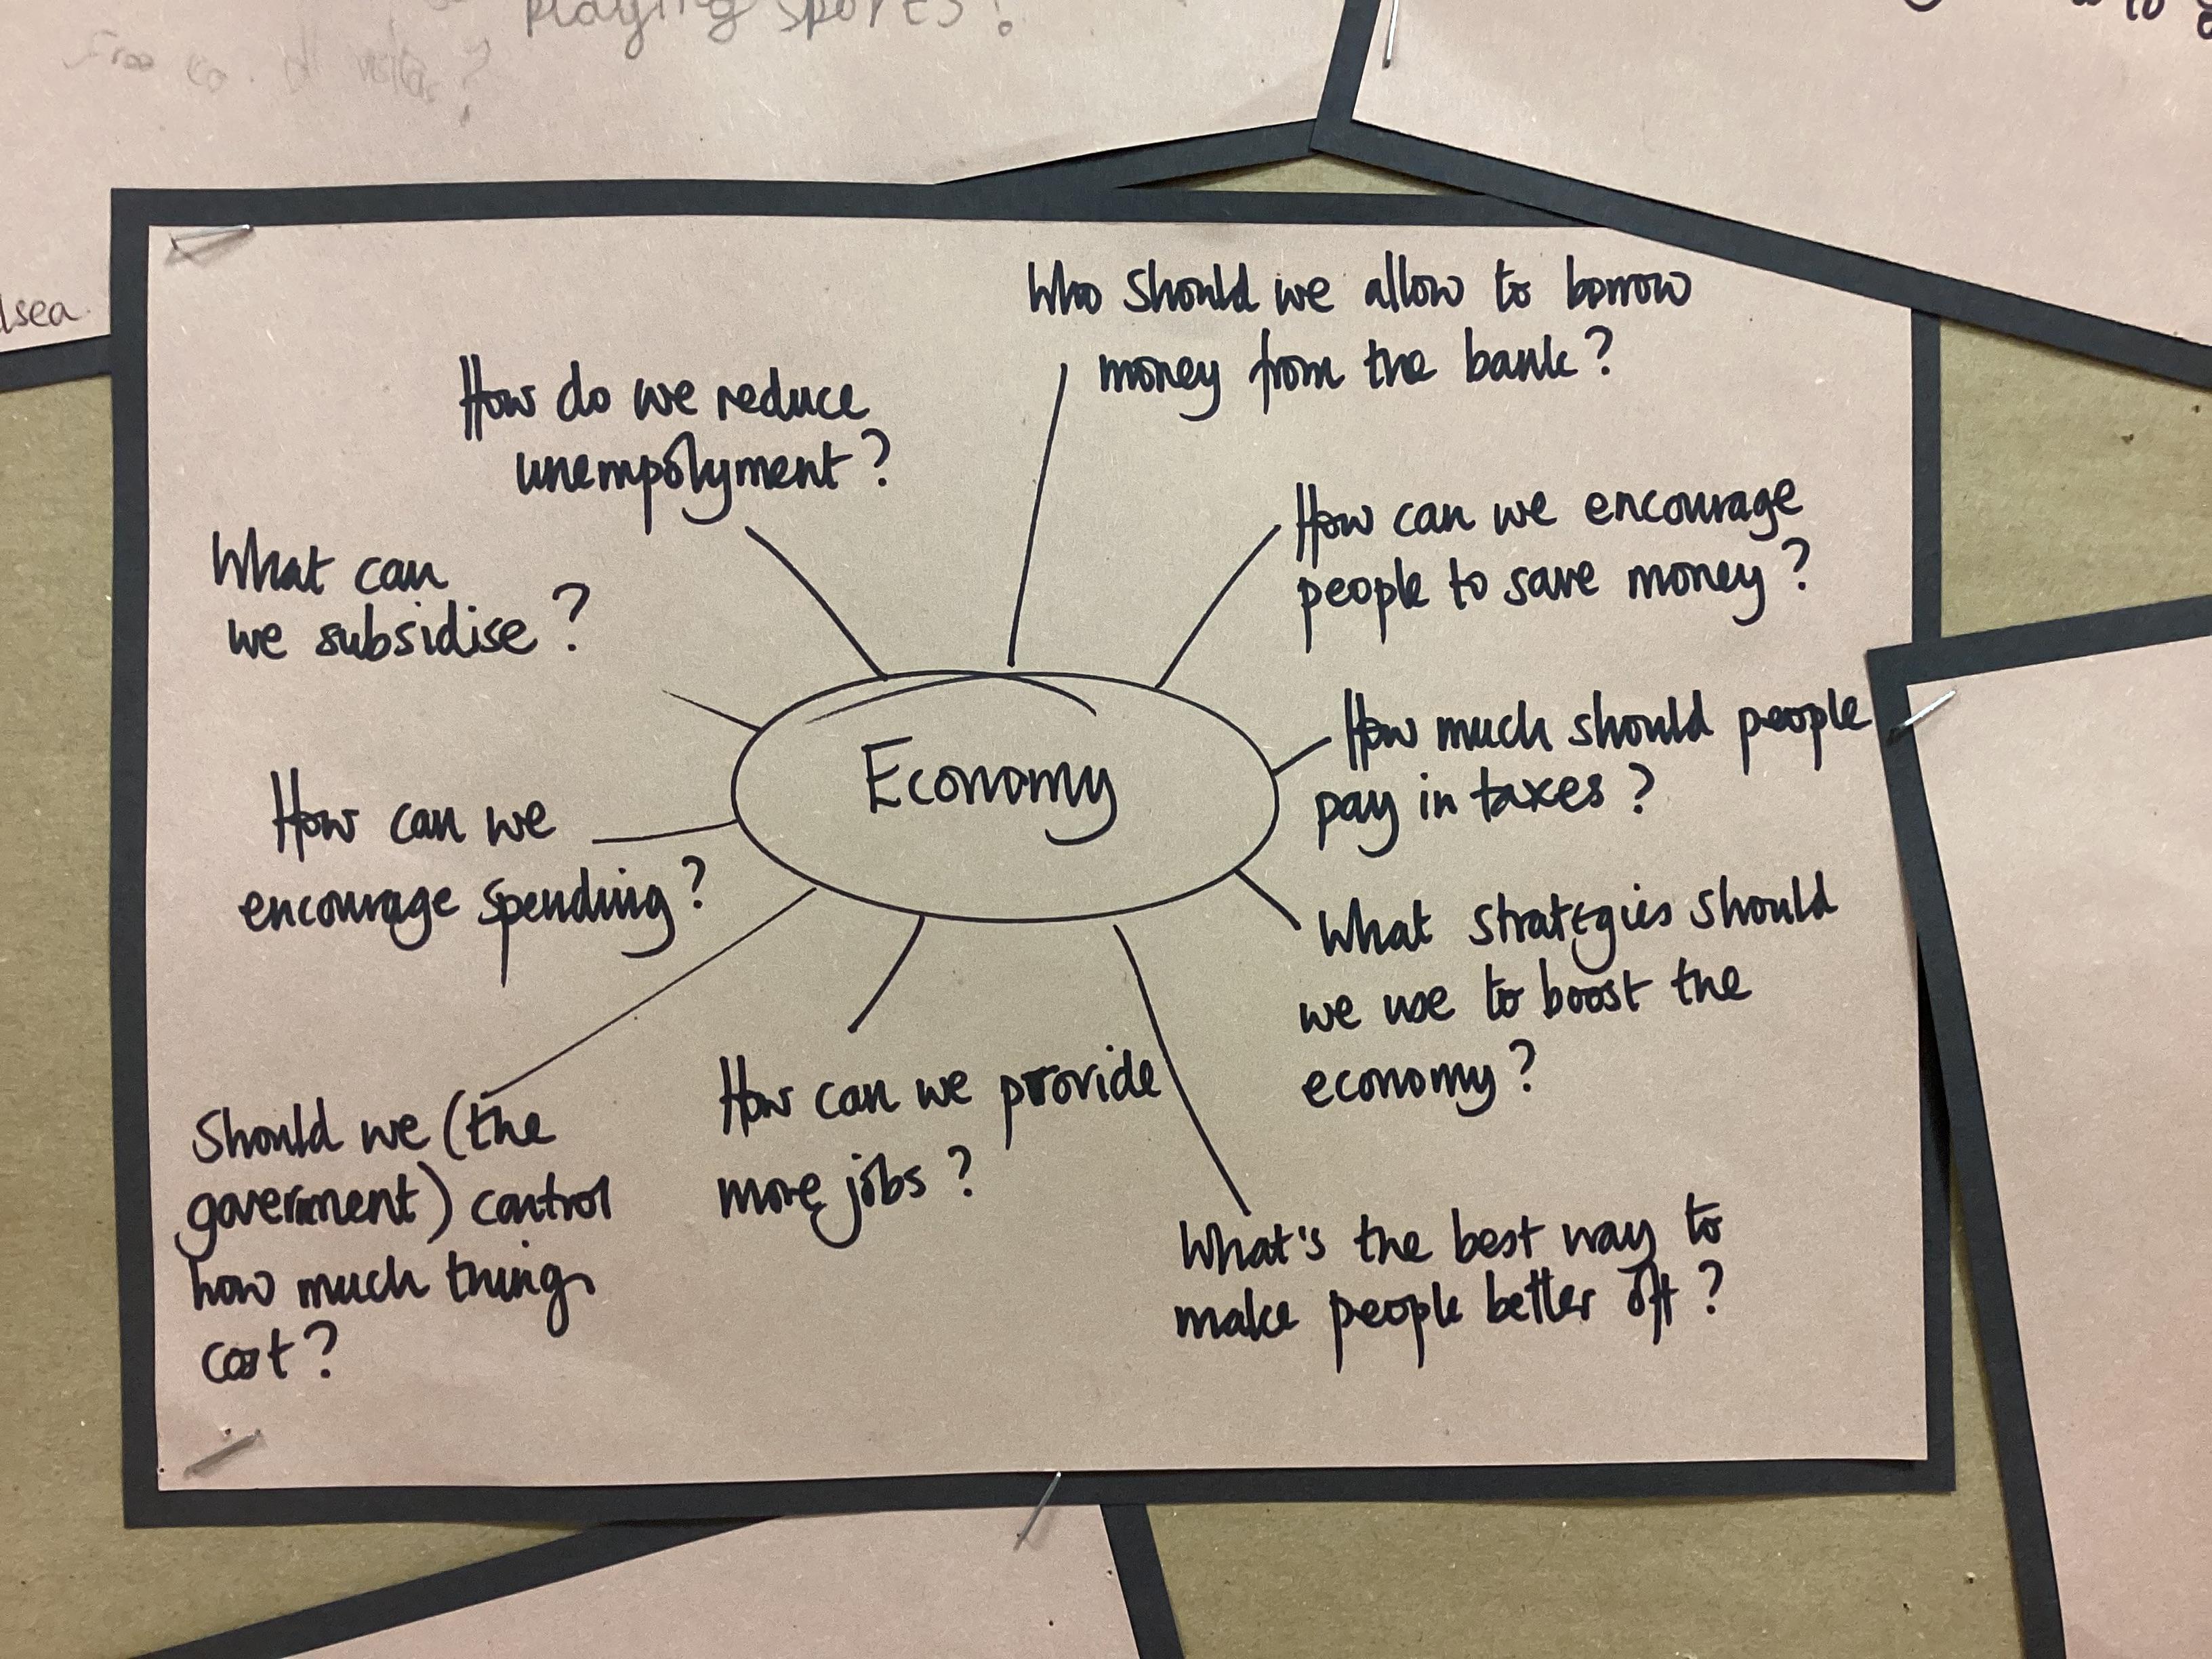 playing sports?
lsea
Who should we allow to borrow
money from the bank?
How do we reduce
unempolyment?
How can we encourage
people to save money?
What can
we subsidise?
How much should people
pay in taxes?
Economy
How can we
encourage spending?
What strategies should
we use to boost the
economy?
How can we provide
more jobs?
Should we (the
goverment) control
how much things
cost?
What's the best way to
make people better off?